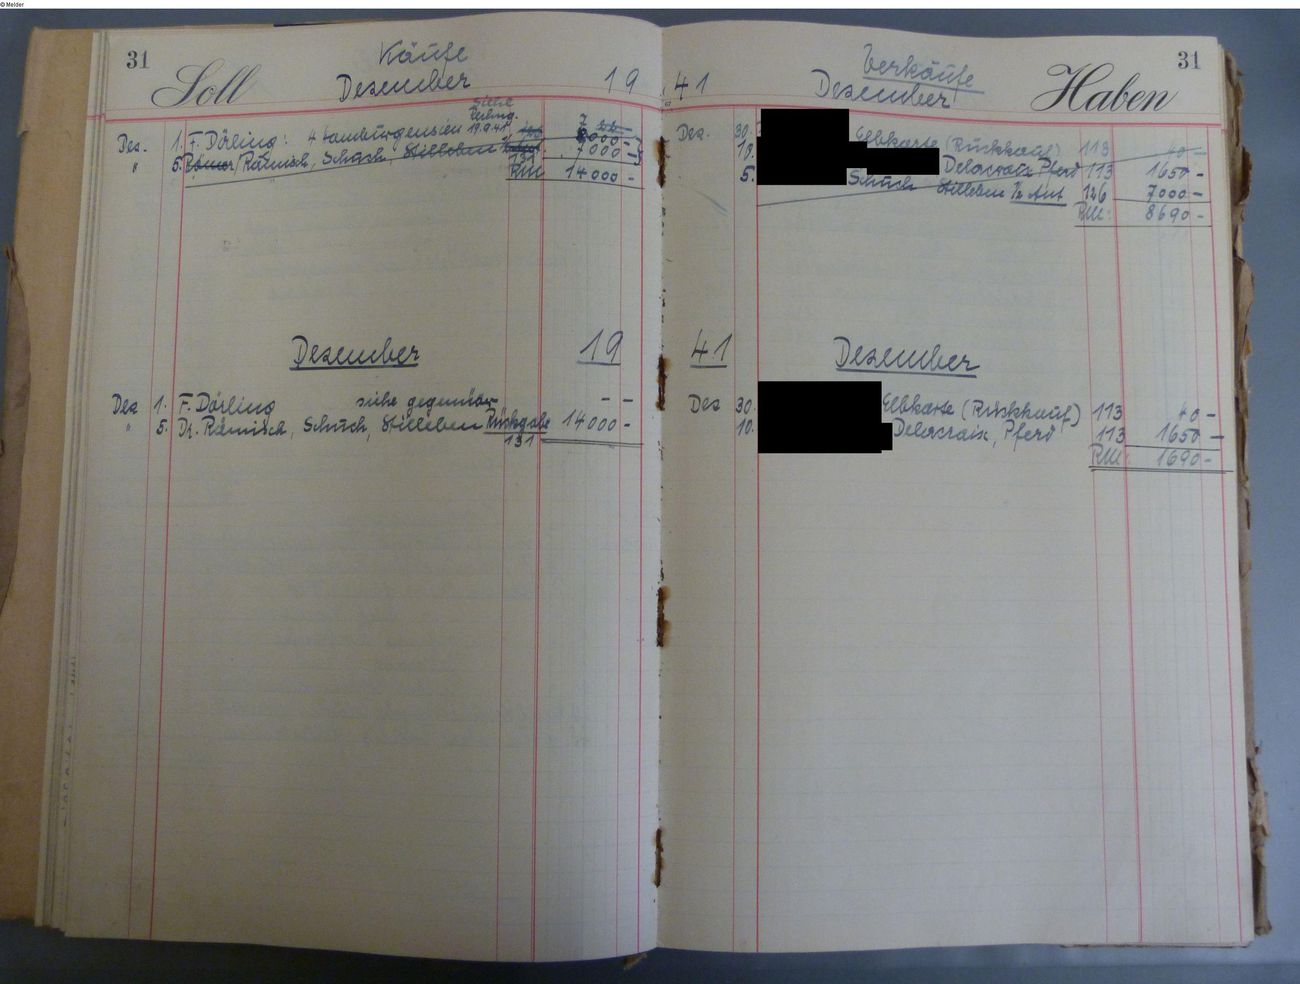 © Melder
31 Käufe
Soll Dezember 19
siehe
Dez. 1. F. Dörling: 4 Hamburgensien 19.9.41
" 5. Rämisch, Schuch Stilleben 131 7000 -
RM 14000 -
Dezember 19
Dez 1. F. Dörling siehe gegenüber - -
" 5. Dr. Rämisch, Schuch, Stilleben Rückgabe 14000 -
131
Verkäufe 31
41 Dezember Haben
Dez. 30. Elbkarte (Rückkauf) 113 40 -
10. Delacroix Pferd 113 1650 -
5. Schuch Stilleben 1/2 Ant 126 7000 -
RM: 8690 -
41 Dezember
Dez 30. Elbkarte (Rückkauf) 113 40 -
10. Delacroix, Pferd 113 1650 -
RM: 1690 -